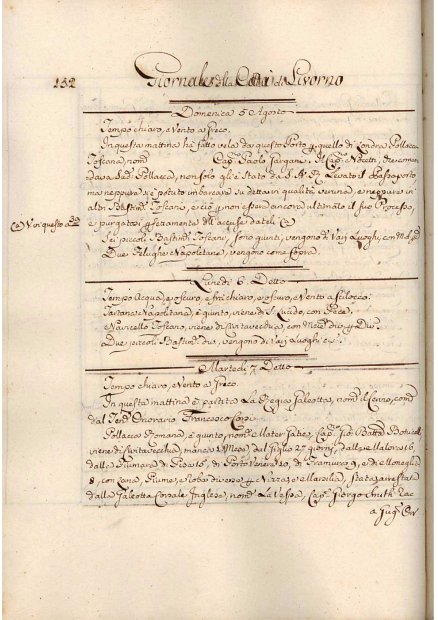 132 Giornale della Città di Livorno
Domenica 5 Agosto
Tempo chiaro, e Vento a Greco.
In questa mattina hà fatto vela da questo Porto p quello di Londra Pollacca
Toscana, nom Cap Paolo Sargani, il Cap Ndcetti, che coman
dava la d Pollacca, non solo gl'è Stato da S. A. R. Levato il Passaporto
ma neppure s'è potuto imbarcare su detta in qualità veruna, e neppure in
altri Bastim Toscani, e ciò p non esser ancora ultimato il suo Processo,
e purgatosi dell'accuse dateli (a)
(a) V. in questo a
Sei piccoli Bastim Toscani, sono giunti, vengono da Varj Luoghi, con
Due Felughe Napoletane, vengono come Sopra.
Lunedì 6. Detto
Tempo Acqua, e oscuro, e fra chiaro, e oscuro, e Vento a Scilocco.
Tartana Napolitana, è giunta, viene di S. Lucido, con Pece.
Navicello Toscano, viene di Civitavecchia, con
Due piccoli Bastim, vengono di Varj Luoghi
Martedì 7. Detto
Tempo chiaro, e Vento a Greco
In questa mattina è partita La Regia Galeotta, nom il Cervo, com
dal Ten Onorario Francesco Corsi
Pollacca Romana, è giunta, nom Mater Salutis, Cap Gio Batta
viene di Civitavecchia, manca Mese, dal Giglio 27 giorni, dalla
dalla Fiumara di 16, di Porto Venere 20, di Tramura 9, e di Moneglia
8, con Lana, p Nizza, e Marsilia, Stata arrestata
dalla Galeotta Corsale Inglese, nom La Vespa, Cap Giorgio Smith